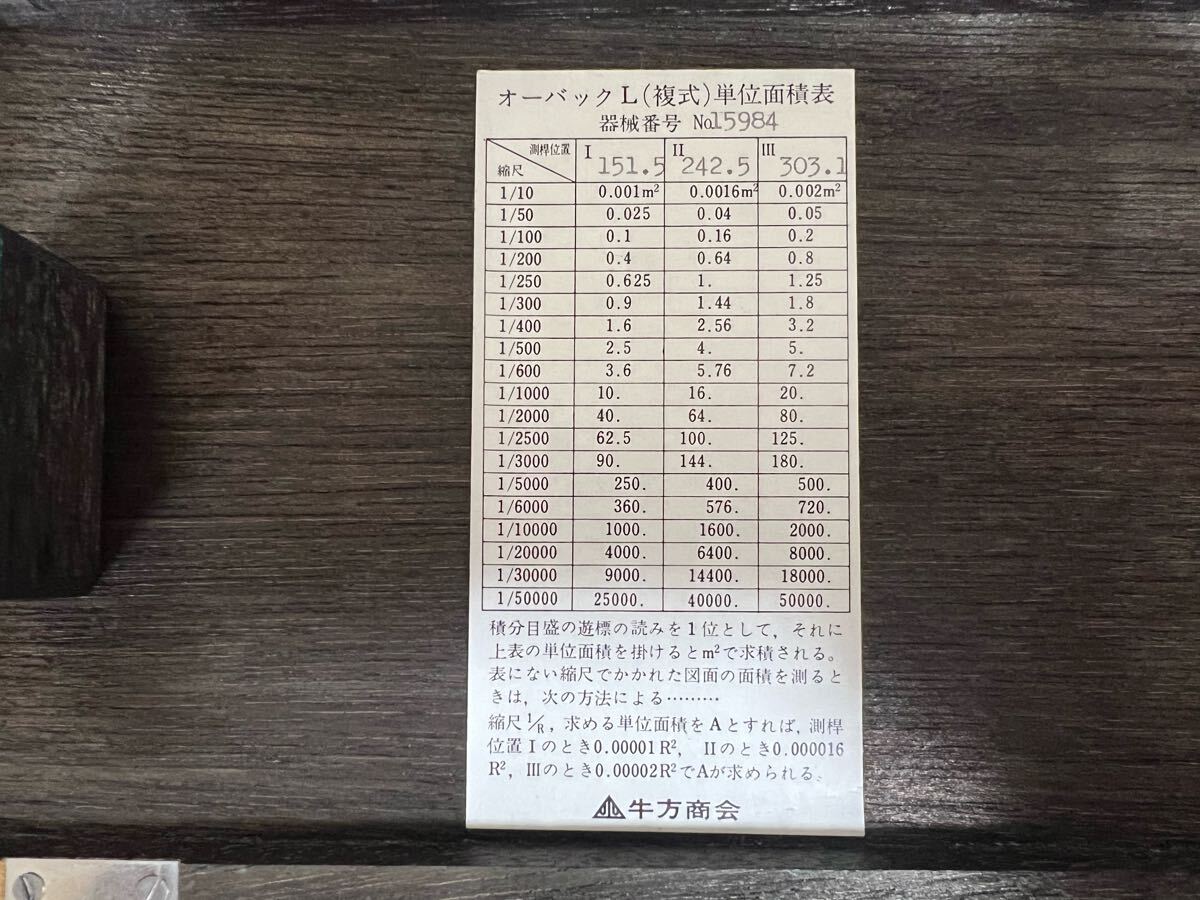 オーバックL(複式)単位面積表
器械番号 No15984
測桿位置 縮尺 I 151.5 II 242.5 III 303.1
1/10 0.001m² 0.0016m² 0.002m²
1/50 0.025 0.04 0.05
1/100 0.1 0.16 0.2
1/200 0.4 0.64 0.8
1/250 0.625 1. 1.25
1/300 0.9 1.44 1.8
1/400 1.6 2.56 3.2
1/500 2.5 4. 5.
1/600 3.6 5.76 7.2
1/1000 10. 16. 20.
1/2000 40. 64. 80.
1/2500 62.5 100. 125.
1/3000 90. 144. 180.
1/5000 250. 400. 500.
1/6000 360. 576. 720.
1/10000 1000. 1600. 2000.
1/20000 4000. 6400. 8000.
1/30000 9000. 14400. 18000.
1/50000 25000. 40000. 50000.
積分目盛の遊標の読みを1位として,それに
上表の単位面積を掛けるとm²で求積される。
表にない縮尺でかかれた図面の面積を測ると
きは,次の方法による………
縮尺1/R,求める単位面積をAとすれば,測桿
位置Iのとき0.00001R², IIのとき0.000016
R²,IIIのとき0.00002R²でAが求められる。
牛方商会